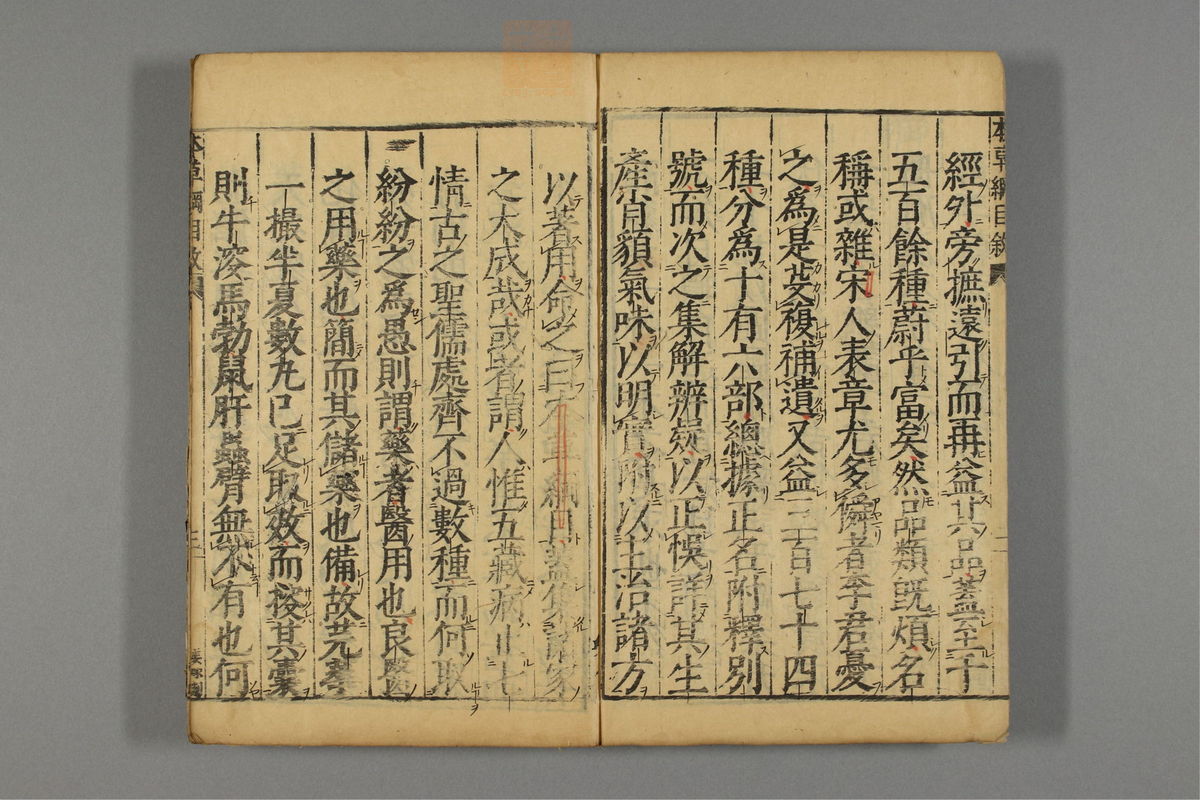 經外旁摭遠引而再益廿六品蓋至千
五百餘種蔚乎富矣然品類既煩名
稱或雜宋人表章尤多舛者李君憂
之為是芟複補遺又益三百七十四
種分為十有六部總據正名附釋別
號而次之集解辨疑以正悞詳其生
產肖額氣味以明實附以主治諸方
以著用命之曰本草綱目蓋集諸家
之大成哉或者謂人惟五藏病止七
情古之聖儒處齊不過數種而何取
紛紛之為愚則謂藥者醫用也良醫
之用藥也簡而其儲藥也備故芫
一撮半夏數丸已足取效而按其囊
則牛溲馬勃鼠肝蟲臂無不有也何
本草綱目敘
本草綱目敘